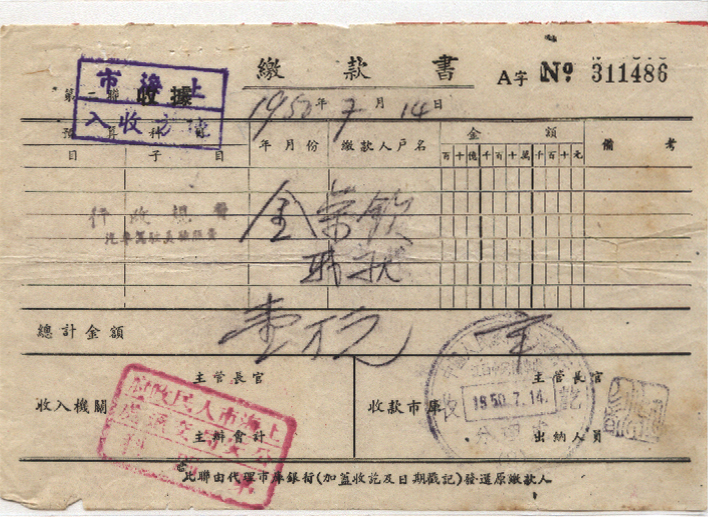 繳款書
A字 Nº 311486
上海市
地方收入
第二聯 收據
1950年7月14日
預算科目
目 子目
年月份 繳款人戶名 金額 備考
百十億千百十萬千百十元
行政規費
汽車駕駛員執照費
金
總計金額
收入機關
主管長官
主辦會計
收款市庫
主管長官
出納人員
上海市人民政府
公用局交通處
收
1950.7.14.
訖
此聯由代理市庫銀行(加蓋收訖及日期戳記)發還原繳款人